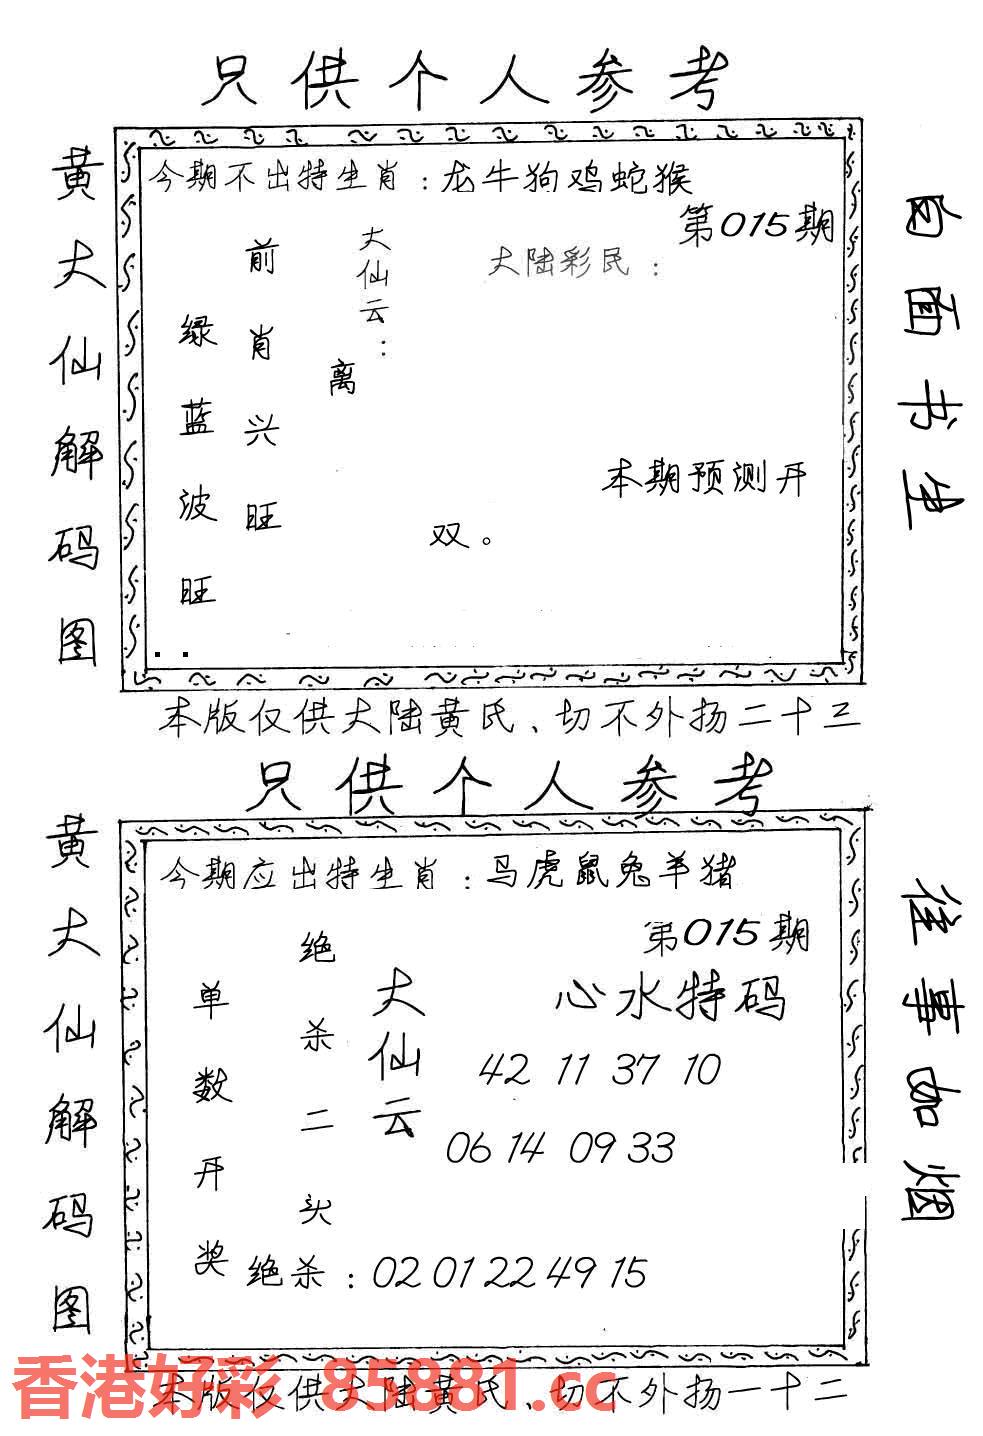 只供个人参考
黄大仙解码图
今期不出特生肖：龙牛狗鸡蛇猴
第015期
大陆彩民：
大仙云：
离
前肖兴旺
绿蓝波旺
本期预测开
双。
白面书生
本版仅供大陆黄氏、切不外扬二十三
只供个人参考
黄大仙解码图
今期应出特生肖：马虎鼠兔羊猪
第015期
心水特码
大仙云
42 11 37 10
06 14 09 33
绝杀二头
单数开奖
绝杀：02 01 22 49 15
往事如烟
香港好彩 85881.cc
本版仅供大陆黄氏、切不外扬一十二